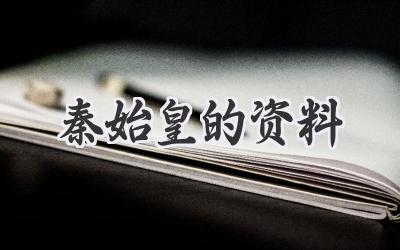 秦始皇的资料